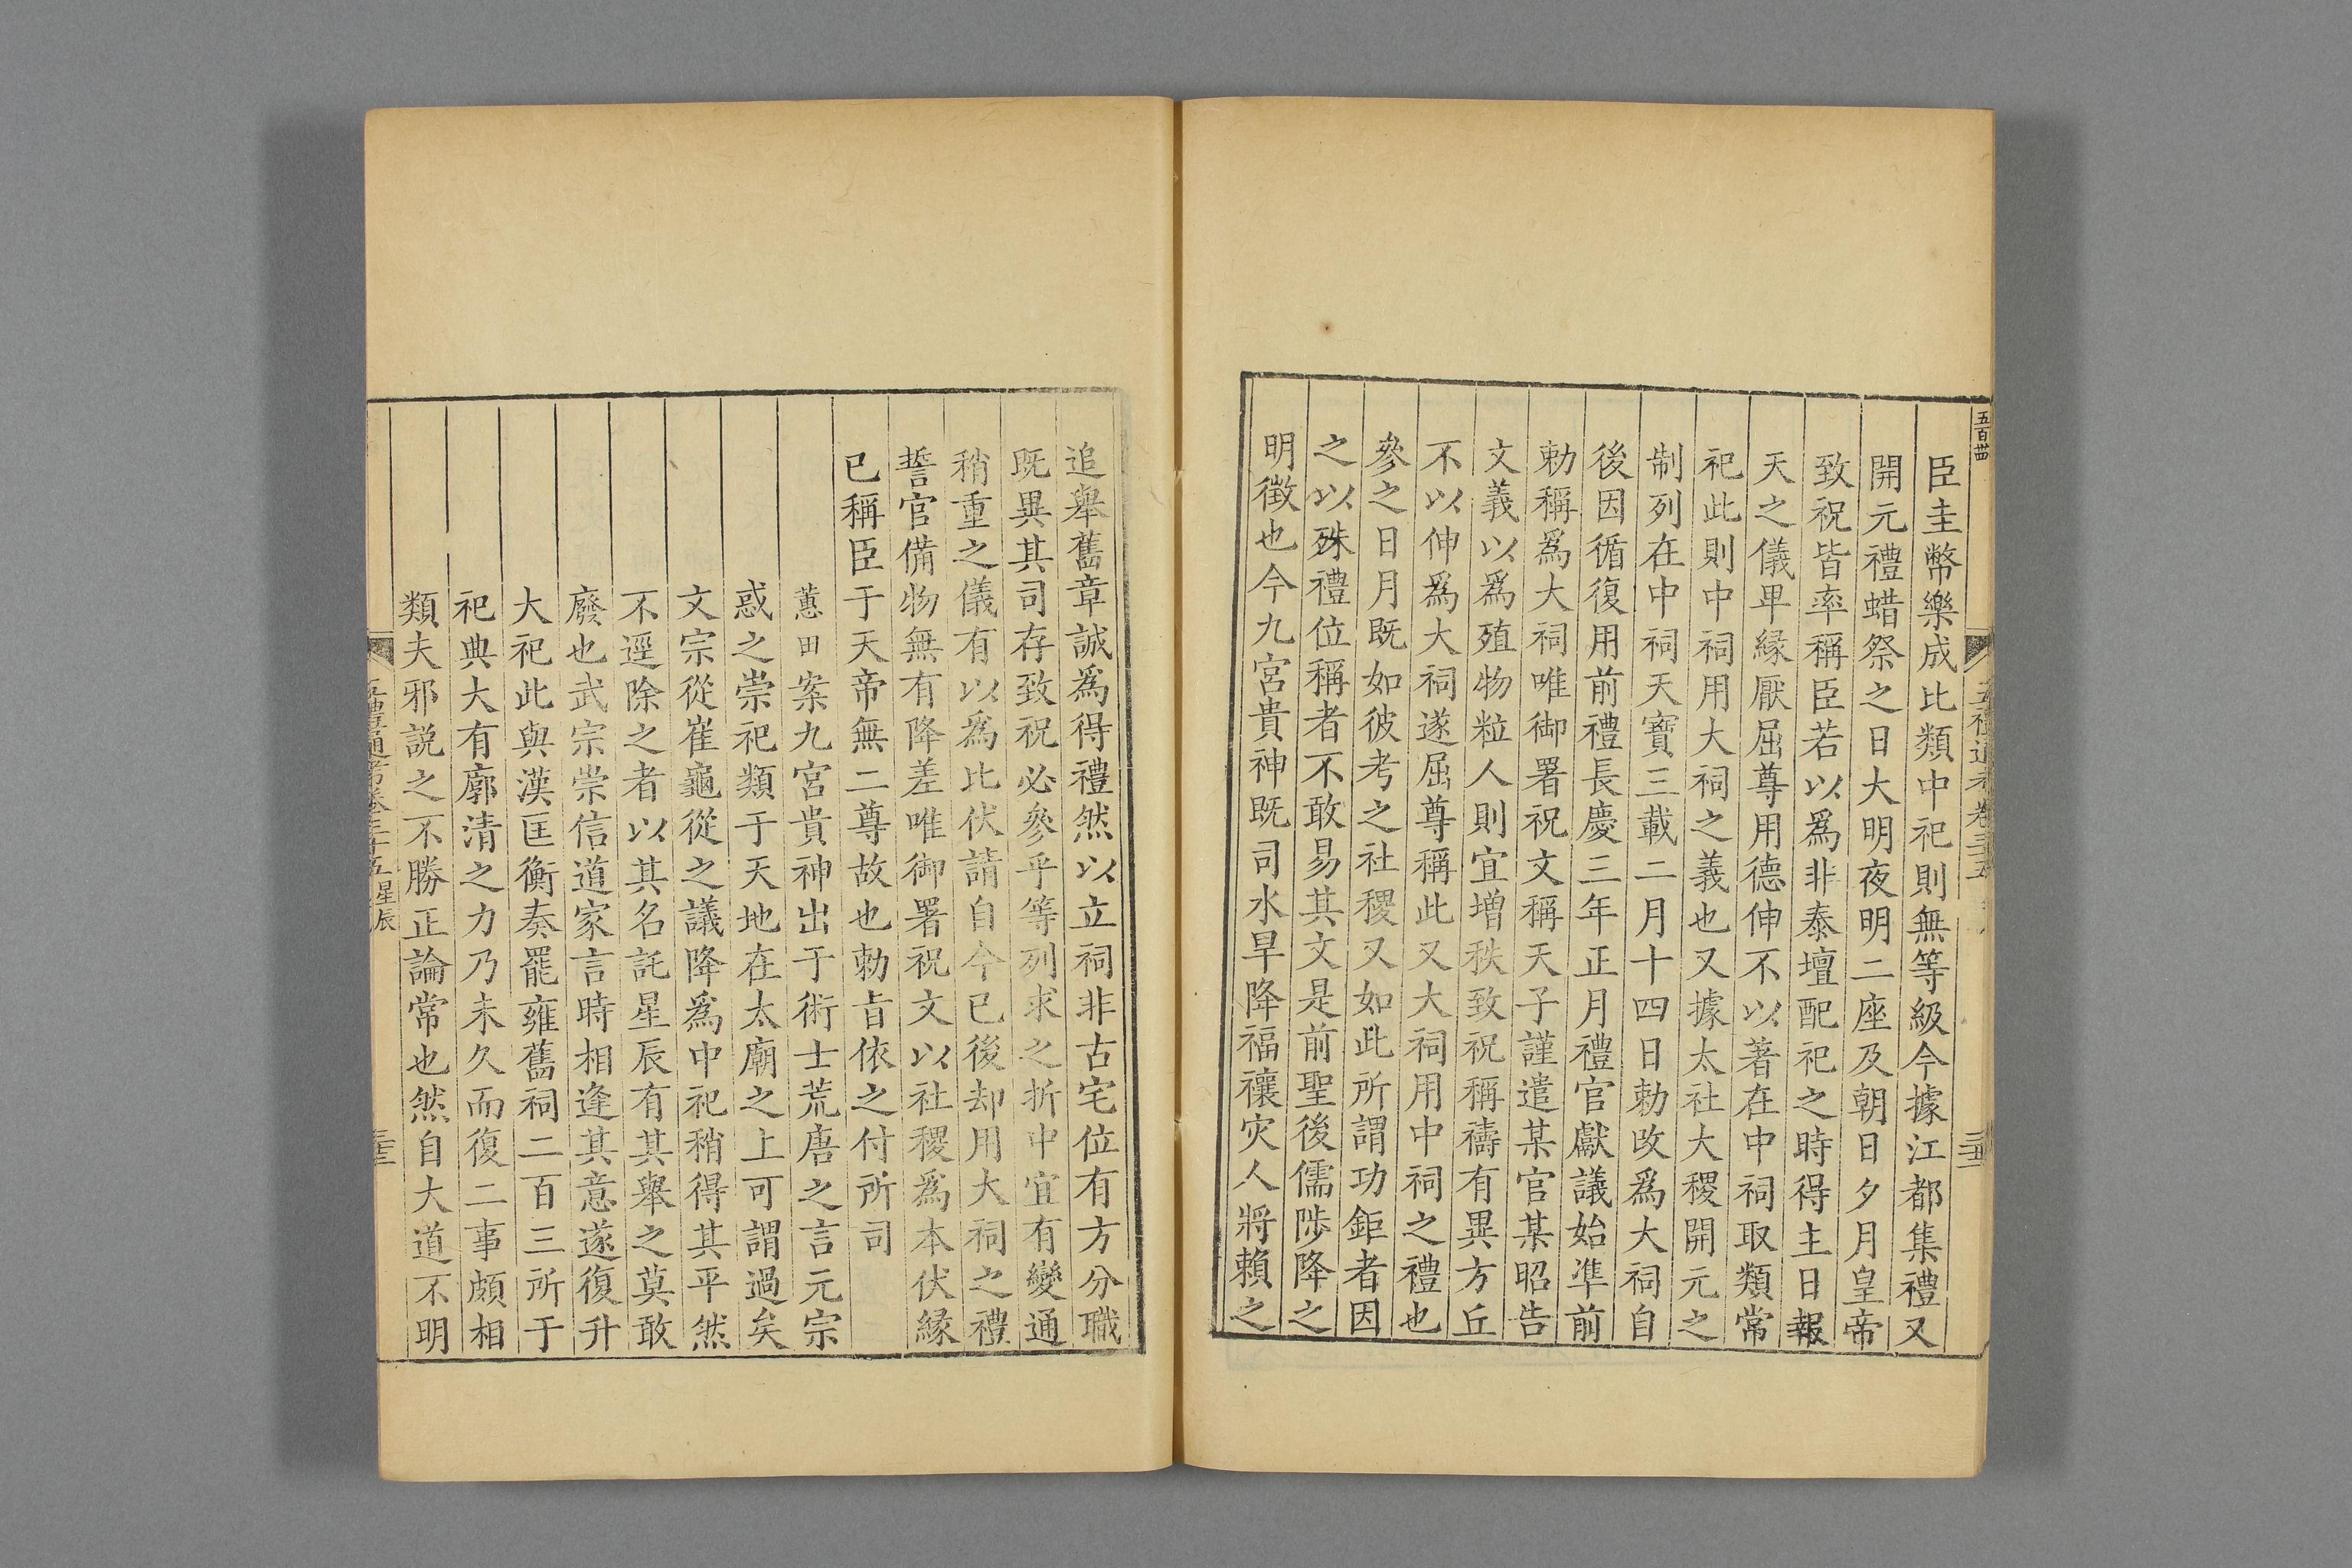 臣圭幣樂成比類中祀則無等級今據江都集禮又
開元禮蜡祭之日大明夜明二座及朝日夕月皇帝
致祝皆率稱臣若以為非泰壇配祀之時得主日報
天之儀卑緣厭屈尊用德伸不以著在中祠取類常
祀此則中祠用大祠之義也又據太社大稷開元之
制列在中祠天寶三載二月十四日勅改為大祠自
後因循復用前禮長慶三年正月禮官獻議始準前
勅稱為大祠唯御署祝文稱天子謹遣某官某昭告
文義以為殖物粒人則宜增秩致祝稱禱有異方丘
不以伸為大祠遂屈尊稱此又大祠用中祠之禮也
參之日月既如彼考之社稷又如此所謂功鉅者因
之以殊禮位稱者不敢易其文是前聖後儒陟降之
明徵也今九宮貴神既司水旱降福禳灾人將賴之
追舉舊章誠為得禮然以立祠非古宅位有方分職
既異其司存致祝必參乎等列求之折中宜有變通
稍重之儀有以為比伏請自今已後却用大祠之禮
誓官備物無有降差唯御署祝文以社稷為本伏緣
已稱臣于天帝無二尊故也勅旨依之付所司
蕙田案九宮貴神出于術士荒唐之言元宗
惑之崇祀類于天地在太廟之上可謂過矣
文宗從崔龜從之議降為中祀稍得其平然
不逕除之者以其名託星辰有其舉之莫敢
廢也武宗崇信道家言時相逢其意遂復升
大祀此與漢匡衡奏罷雍舊祠二百三所于
祀典大有廓清之力乃未久而復二事頗相
類夫邪說之不勝正論常也然自大道不明